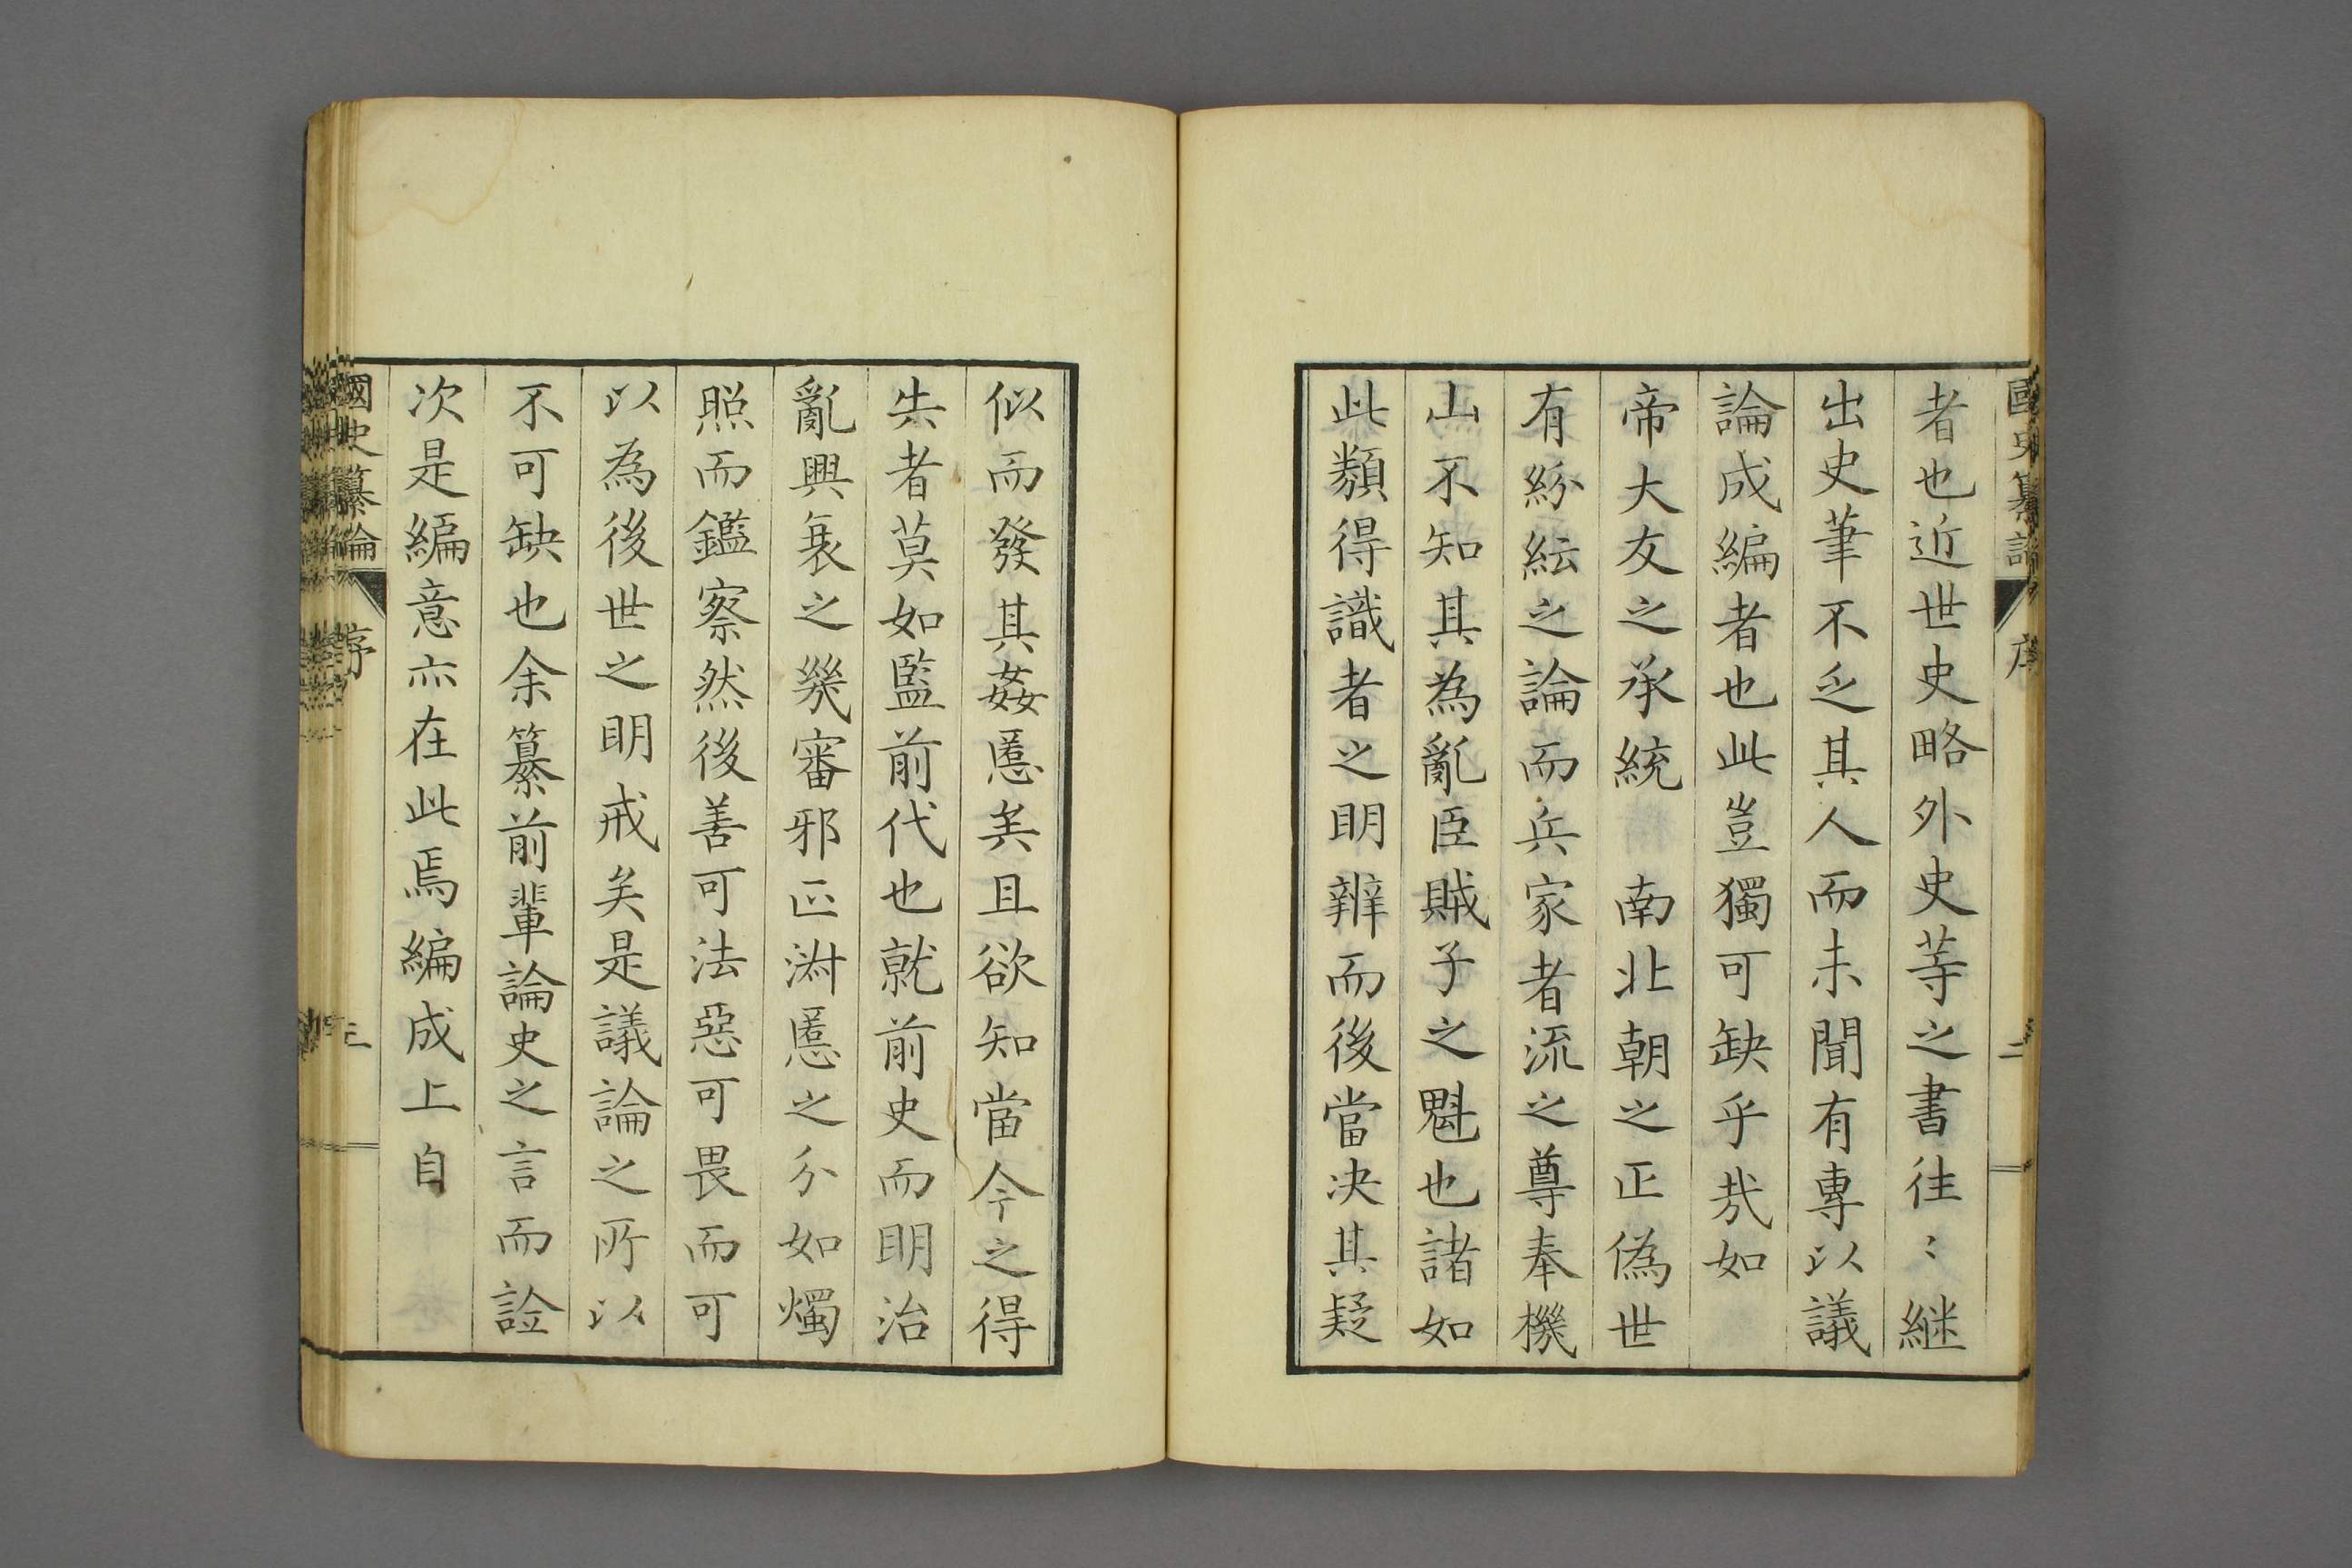 國史纂論 序 二
者也近世史略外史等之書往〻継
出史筆不乏其人而未聞有專以議
論成編者也此豈獨可缺乎㦲如
帝大友之承統 南北朝之正偽世
有紛紜之論而兵家者流之尊奉機
山不知其為亂臣賊子之魁也諸如
此類得識者之明辨而後當决其疑
似而發其姦慝矣且欲知當今之得
失者莫如監前代也就前史而明治
亂興衰之幾審邪正淑慝之分如燭
照而鑑察然後善可法惡可畏而可
以為後世之明戒矣是議論之所以
不可缺也余纂前輩論史之言而論
次是編意亦在此焉編成上自
國史纂論 序 三